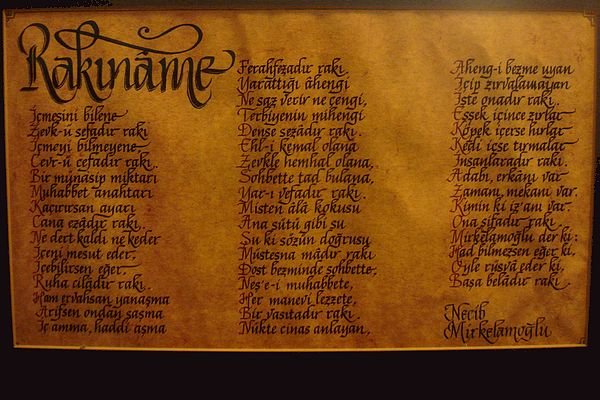 Rakınâme
İçmesini bilene
Zevk-ü sefadır rakı
İçmeyi bilmeyene
Cevr-ü cefadır rakı.
Bir münasip miktarı
Muhabbet anahtarı
Kaçırırsan ayarı
Cana ezadır rakı.
Ne dert kaldı ne keder
İçeni mesut eder,
İçebilirsen eğer
Ruha ciladır rakı.
Ham ervahsan yanaşma
Arifsen ondan şaşma
İç amma, haddi aşma
Ferahfezadır rakı.
Yarattığı âhengi
Ne saz verir ne çengi,
Terbiyenin mihengi
Dense sezâdır rakı.
Ehl-i kemal olana
Zevkle hemhal olana,
Sohbette tad bulana,
Yar-ı vefadır rakı.
Misten âlâ kokusu
Ana sütü gibi su
Şu ki sözün doğrusu
Müstesna mâdır rakı
Dost bezminde sohbette,
Neş'e-i muhabbete,
Her manevi lezzete,
Bir vasıtadır rakı.
Nükte cinas anlayan,
Aheng-i bezme uyan
İçip zırvalamayan
İşte onadır rakı.
Eşşek içince zırlar
Köpek içerse hırlar
Kedi içse tırmalar
İnsanlaradır rakı.
Adabı, erkânı var
Zamanı, mekânı var.
Kimin ki iz'anı var.
Ona şifadır rakı.
Mirkelamoğlu der ki:
Had bilmezsen eğer ki,
Öyle rüsvâ eder ki,
Başa belâdır rakı.
Necib
Mirkelamoğlu